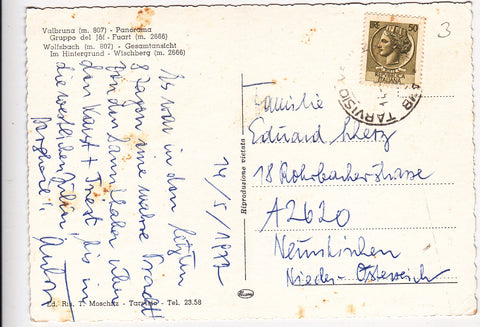 Valbruna (m. 807) - Panorama
Gruppo del Jôf - Fuart (m. 2666)
Wolfsbach (m. 807) - Gesamtansicht
Im Hintergrund - Wischberg (m. 2666)
14/5/1977
Es war in den letzten
8 Tagen eine wahre Pracht
den Karst + Triest bis in
die westlichen Julier
Anton
Riproduzione vietata
50
ITALIANA
TARVISIO
3
Familie
Eduard
18 Rohrbacherstrasse
A2620
Neunkirchen
Nieder-Österreich
Ed. Ris. T. Moschitz - Tarvisio - Tel. 23.58